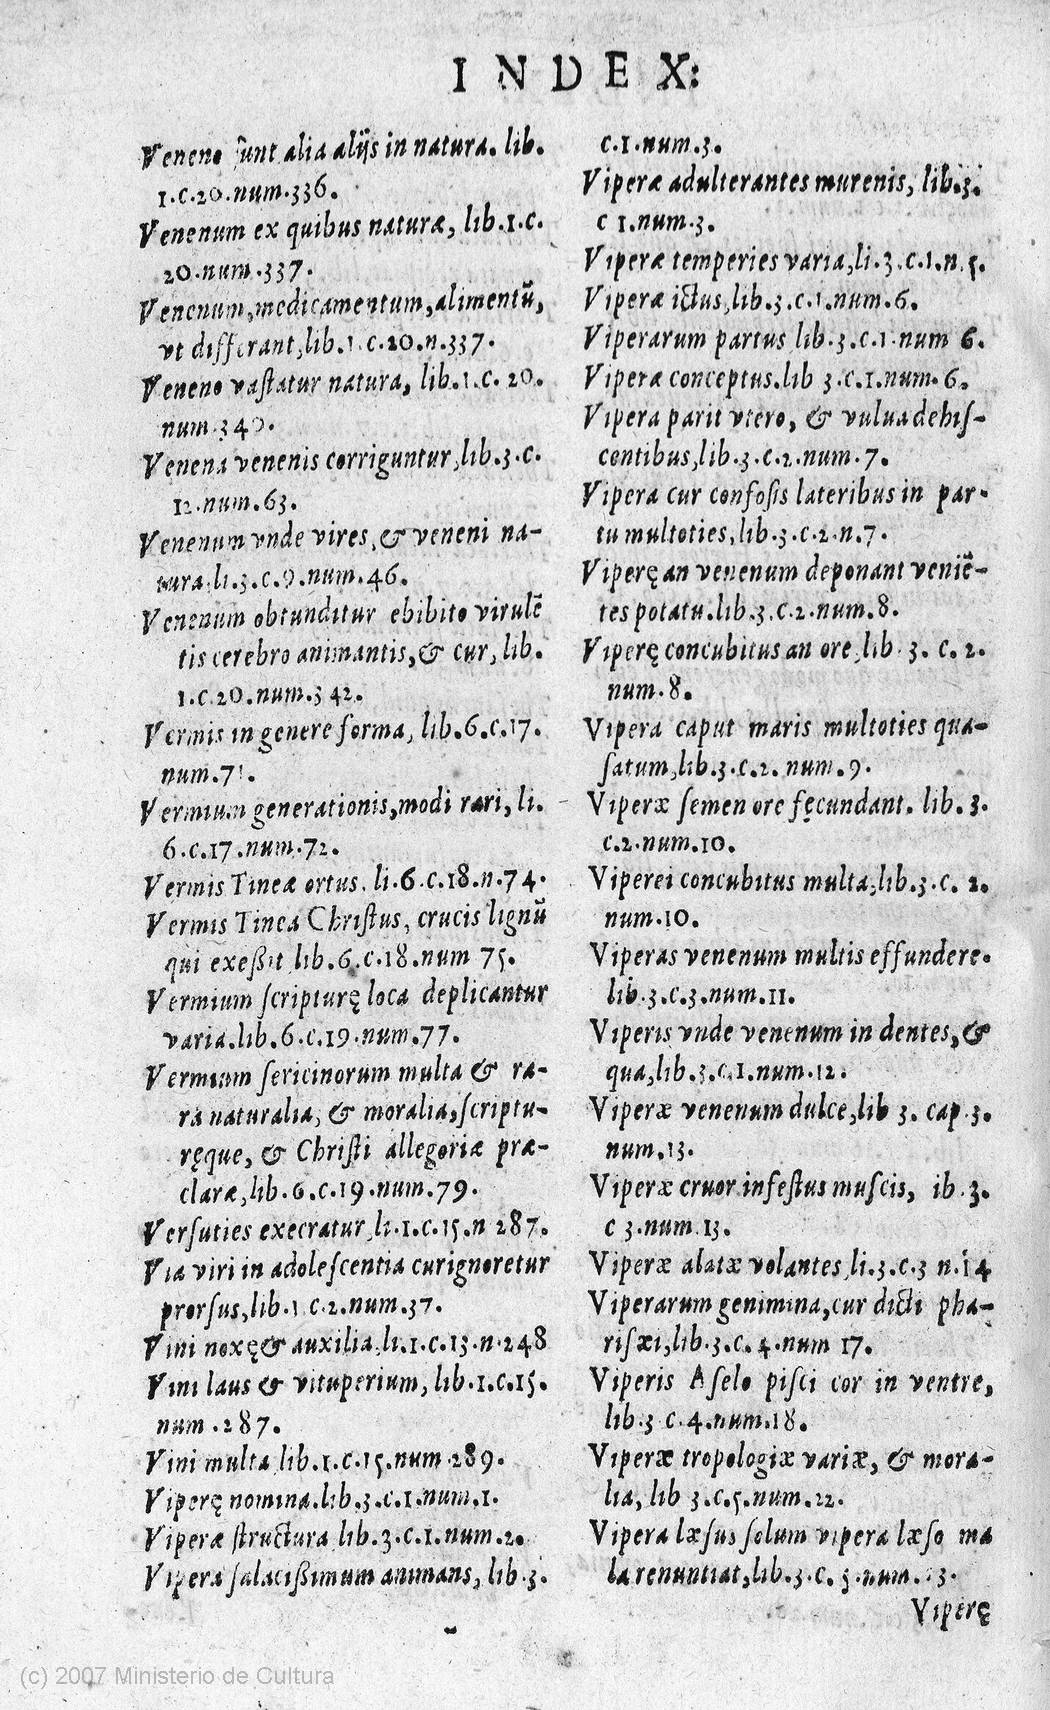 INDEX:
Veneno ſunt alia alijs in natura. lib.
1.c.20.num.336.
Venenum ex quibus naturæ, lib.1.c.
20.num.337.
Venenum,medicamentum,alimentū,
vt differant,lib.1.c.20.n.337.
Veneno vaſtatur natura, lib.1.c.20.
num.340.
Venena venenis corriguntur,lib.3.c.
12.num.63.
Venenum vnde vires,& veneni na-
tura,li.3.c.9.num.46.
Venenum obtunditur ebibito virulē
tis cerebro animantis,& cur,lib.
1.c.20.num.342.
Vermis in genere forma, lib.6.c.17.
num.71.
Vermium generationis,modi rari, li.
6.c.17.num.72.
Vermis Tineæ ortus. li.6.c.18.n.74.
Vermis Tinea Chriſtus, crucis lignū
qui exeßit lib.6.c.18.num 75.
Vermium ſcripturę loca deplicantur
varia.lib.6.c.19.num.77.
Vermium ſericinorum multa & ra-
ra naturalia, & moralia,ſcriptu-
ręque, & Chriſti allegoriæ præ-
claræ,lib.6.c.19.num.79.
Verſuties execratur,li.1.c.15.n 287.
Via viri in adoleſcentia cur ignoretur
prorſus,lib.1 c.2.num.37.
Vini noxę& auxilia,li.1.c.13.n.248
Vini laus & vituperium, lib.1.c.15.
num.287.
Vini multa lib.1.c.15.num 289.
Viperę nomina.lib.3.c.1.num.1.
Viperæ ſtructura lib.3.c.1.num.2.
Vipera ſalacißimum animans, lib.3.
c.1.num.3.
Viperæ adulterantes murenis, lib.3.
c 1.num.3.
Viperæ temperies varia,li.3.c.1.n.5.
Viperæ ictus,lib.3.c.1.num.6.
Viperarum partus lib.3.c.1.num 6.
Viperæ conceptus.lib 3.c.1.num.6.
Vipera parit vtero, & vulua dehiſ-
centibus,lib.3.c.2.num.7.
Vipera cur confoſis lateribus in par-
tu multoties,lib.3.c.2.n.7.
Viperę an venenum deponant veniē-
tes potatu.lib.3.c.2.num.8.
Viperę concubitus an ore,lib.3.c.2.
num.8.
Vipera caput maris multoties qua-
ſatum,lib.3.c.2.num.9.
Viperæ ſemen ore fęcundant. lib.3.
c.2.num.10.
Viperei concubitus multa,lib.3.c.2.
num.10.
Viperas venenum multis effundere.
lib.3.c.3.num.11.
Viperis vnde venenum in dentes,&
qua,lib.3.c.1.num.12.
Viperæ venenum dulce,lib 3. cap.3.
num.13.
Viperæ cruor infeſtus muſcis, ib.3.
c 3.num.13.
Viperæ alatæ volantes,li.3.c.3 n.14
Viperarum genimina,cur dicti pha-
riſæi,lib.3.c.4.num 17.
Viperis Aſelo piſci cor in ventre,
lib.3 c.4.num.18.
Viperæ tropologiæ variæ, & mora-
lia, lib 3.c.5.num.22.
Vipera læſus ſolum vipera læſo ma
la renuntiat,lib.3.c.5.num.3.
Viperę
(c) 2007 Ministerio de Cultura